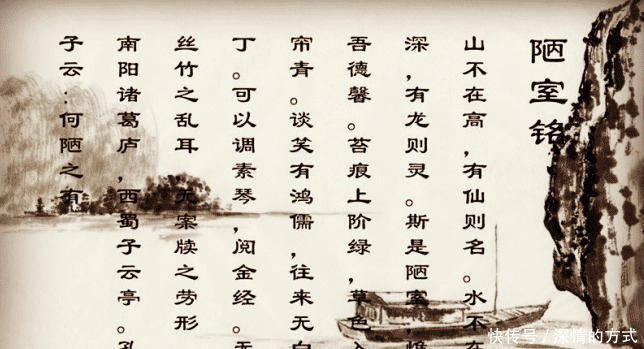 陋室铭
山不在高,有仙则名。水不在
深,有龙则灵。斯是陋室,惟
吾德馨。苔痕上阶绿,草色入
帘青。谈笑有鸿儒,往来无白
丁。可以调素琴,阅金经。无
丝竹之乱耳,无案牍之劳形
南阳诸葛庐,西蜀子云亭。孔
子云:何陋之有
快传号 / 深情的方式